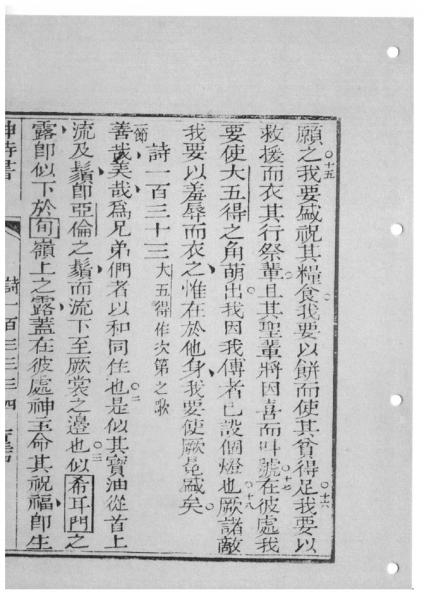 願之○十五我要盛祝其糧食○我要以餅而使其貧得足○十六我要以
救援而衣其行祭輩○且其聖輩將因喜而叫號○十七在彼處我
要使大五得之角萌出○我因我傅者已設個燈也○十八厥諸敵
我要以羞辱而衣之、惟在於他身、我要使厥冕盛矣○
詩一百三十三大五得作次第之歌
一節善哉、美哉、爲兄弟們者以和同住也○二是似其寶油從首上
流及鬚、卽亞倫之鬚、而流下至厥裳之邊也○三似希耳門之
露、卽似下於旬嶺上之露、蓋在彼處神主命其祝福、卽生
神詩書 詩一百三三三四